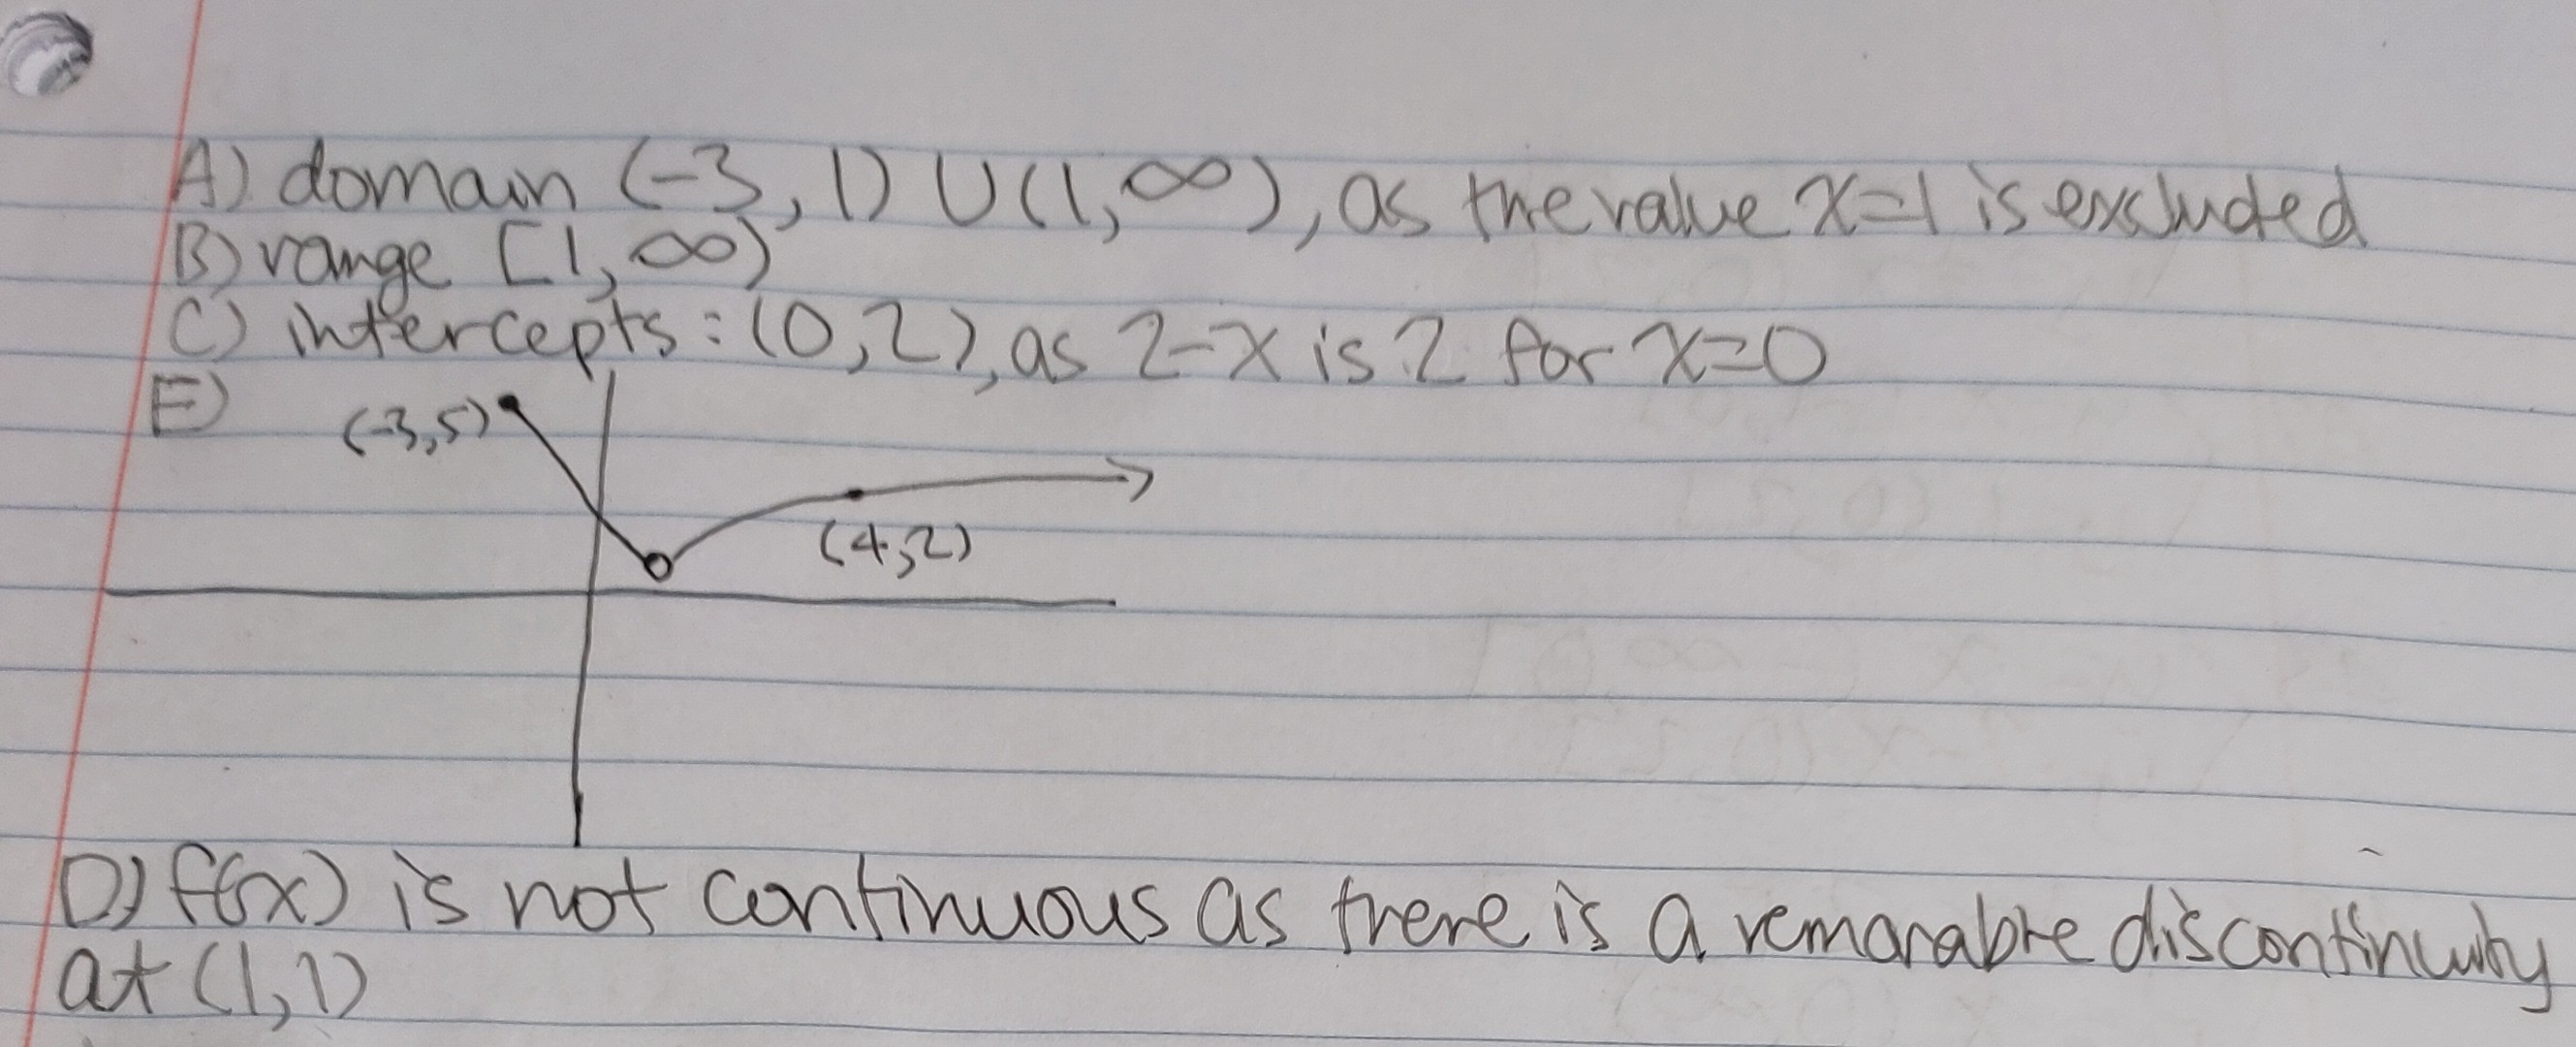 A) domain (-3, 1) ∪ (1, ∞), as the value x=1 is excluded
B) range [1, ∞)
C) intercepts: (0, 2), as 2-x is 2 for x=0
E)
(-3,5)
(4,2)
D) f(x) is not continuous as there is a remarable discontinuity
at (1,1)